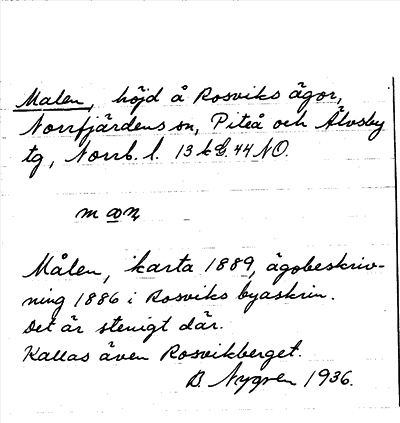 Malen, höjd å Rosviks ägor,
Norrfjärdens sn, Piteå och Älvsby
tg, Norrb. l. 13 k G. 44 NO.
Målen, karta 1889, ägobeskriv-
ning 1886 i Rosviks byaskrin.
Det är stenigt där.
Kallas även Rosvikberget.
D. Nygren 1936.